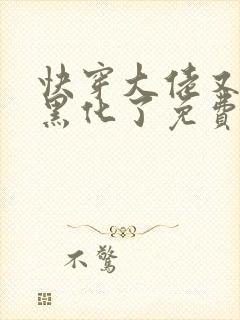 快穿大佬又
黑化了免费
不驚